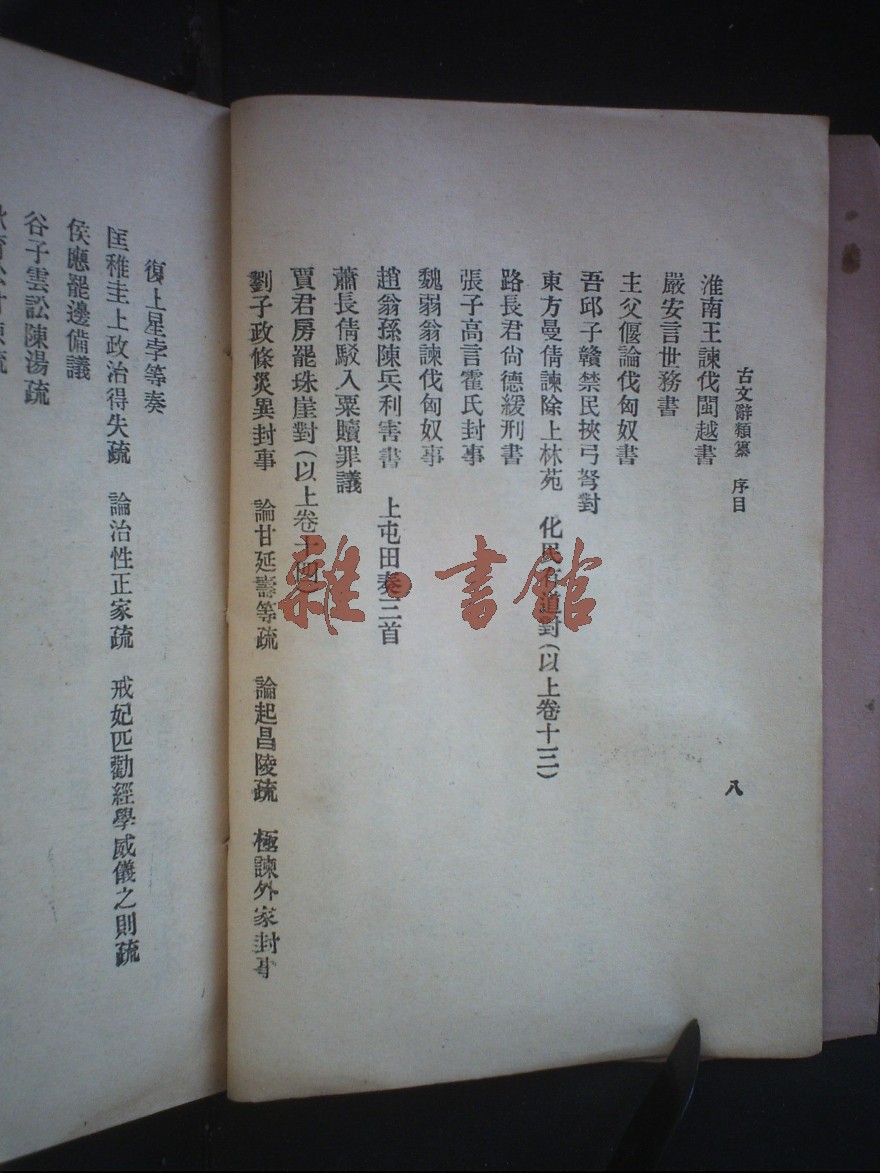 古文辭類纂　序目
八
淮南王諫伐閩越書
嚴安言世務書
主父偃論伐匈奴書
吾邱子贛禁民挾弓弩對
東方曼倩諫除上林苑　化民有道對（以上卷十三）
路長君尙德緩刑書
張子高言霍氏封事
魏弱翁諫伐匈奴事
趙翁孫陳兵利害書　上屯田奏三首
蕭長倩駁入粟贖罪議
賈君房罷珠崖對（以上卷十四）
劉子政條災異封事　論甘延壽等疏　論起昌陵疏　極諫外家封事
復上星孛等奏
匡稚圭上政治得失疏　論治性正家疏　戒妃匹勸經學威儀之則疏
侯應罷邊備議
谷子雲訟陳湯疏
雜·書館